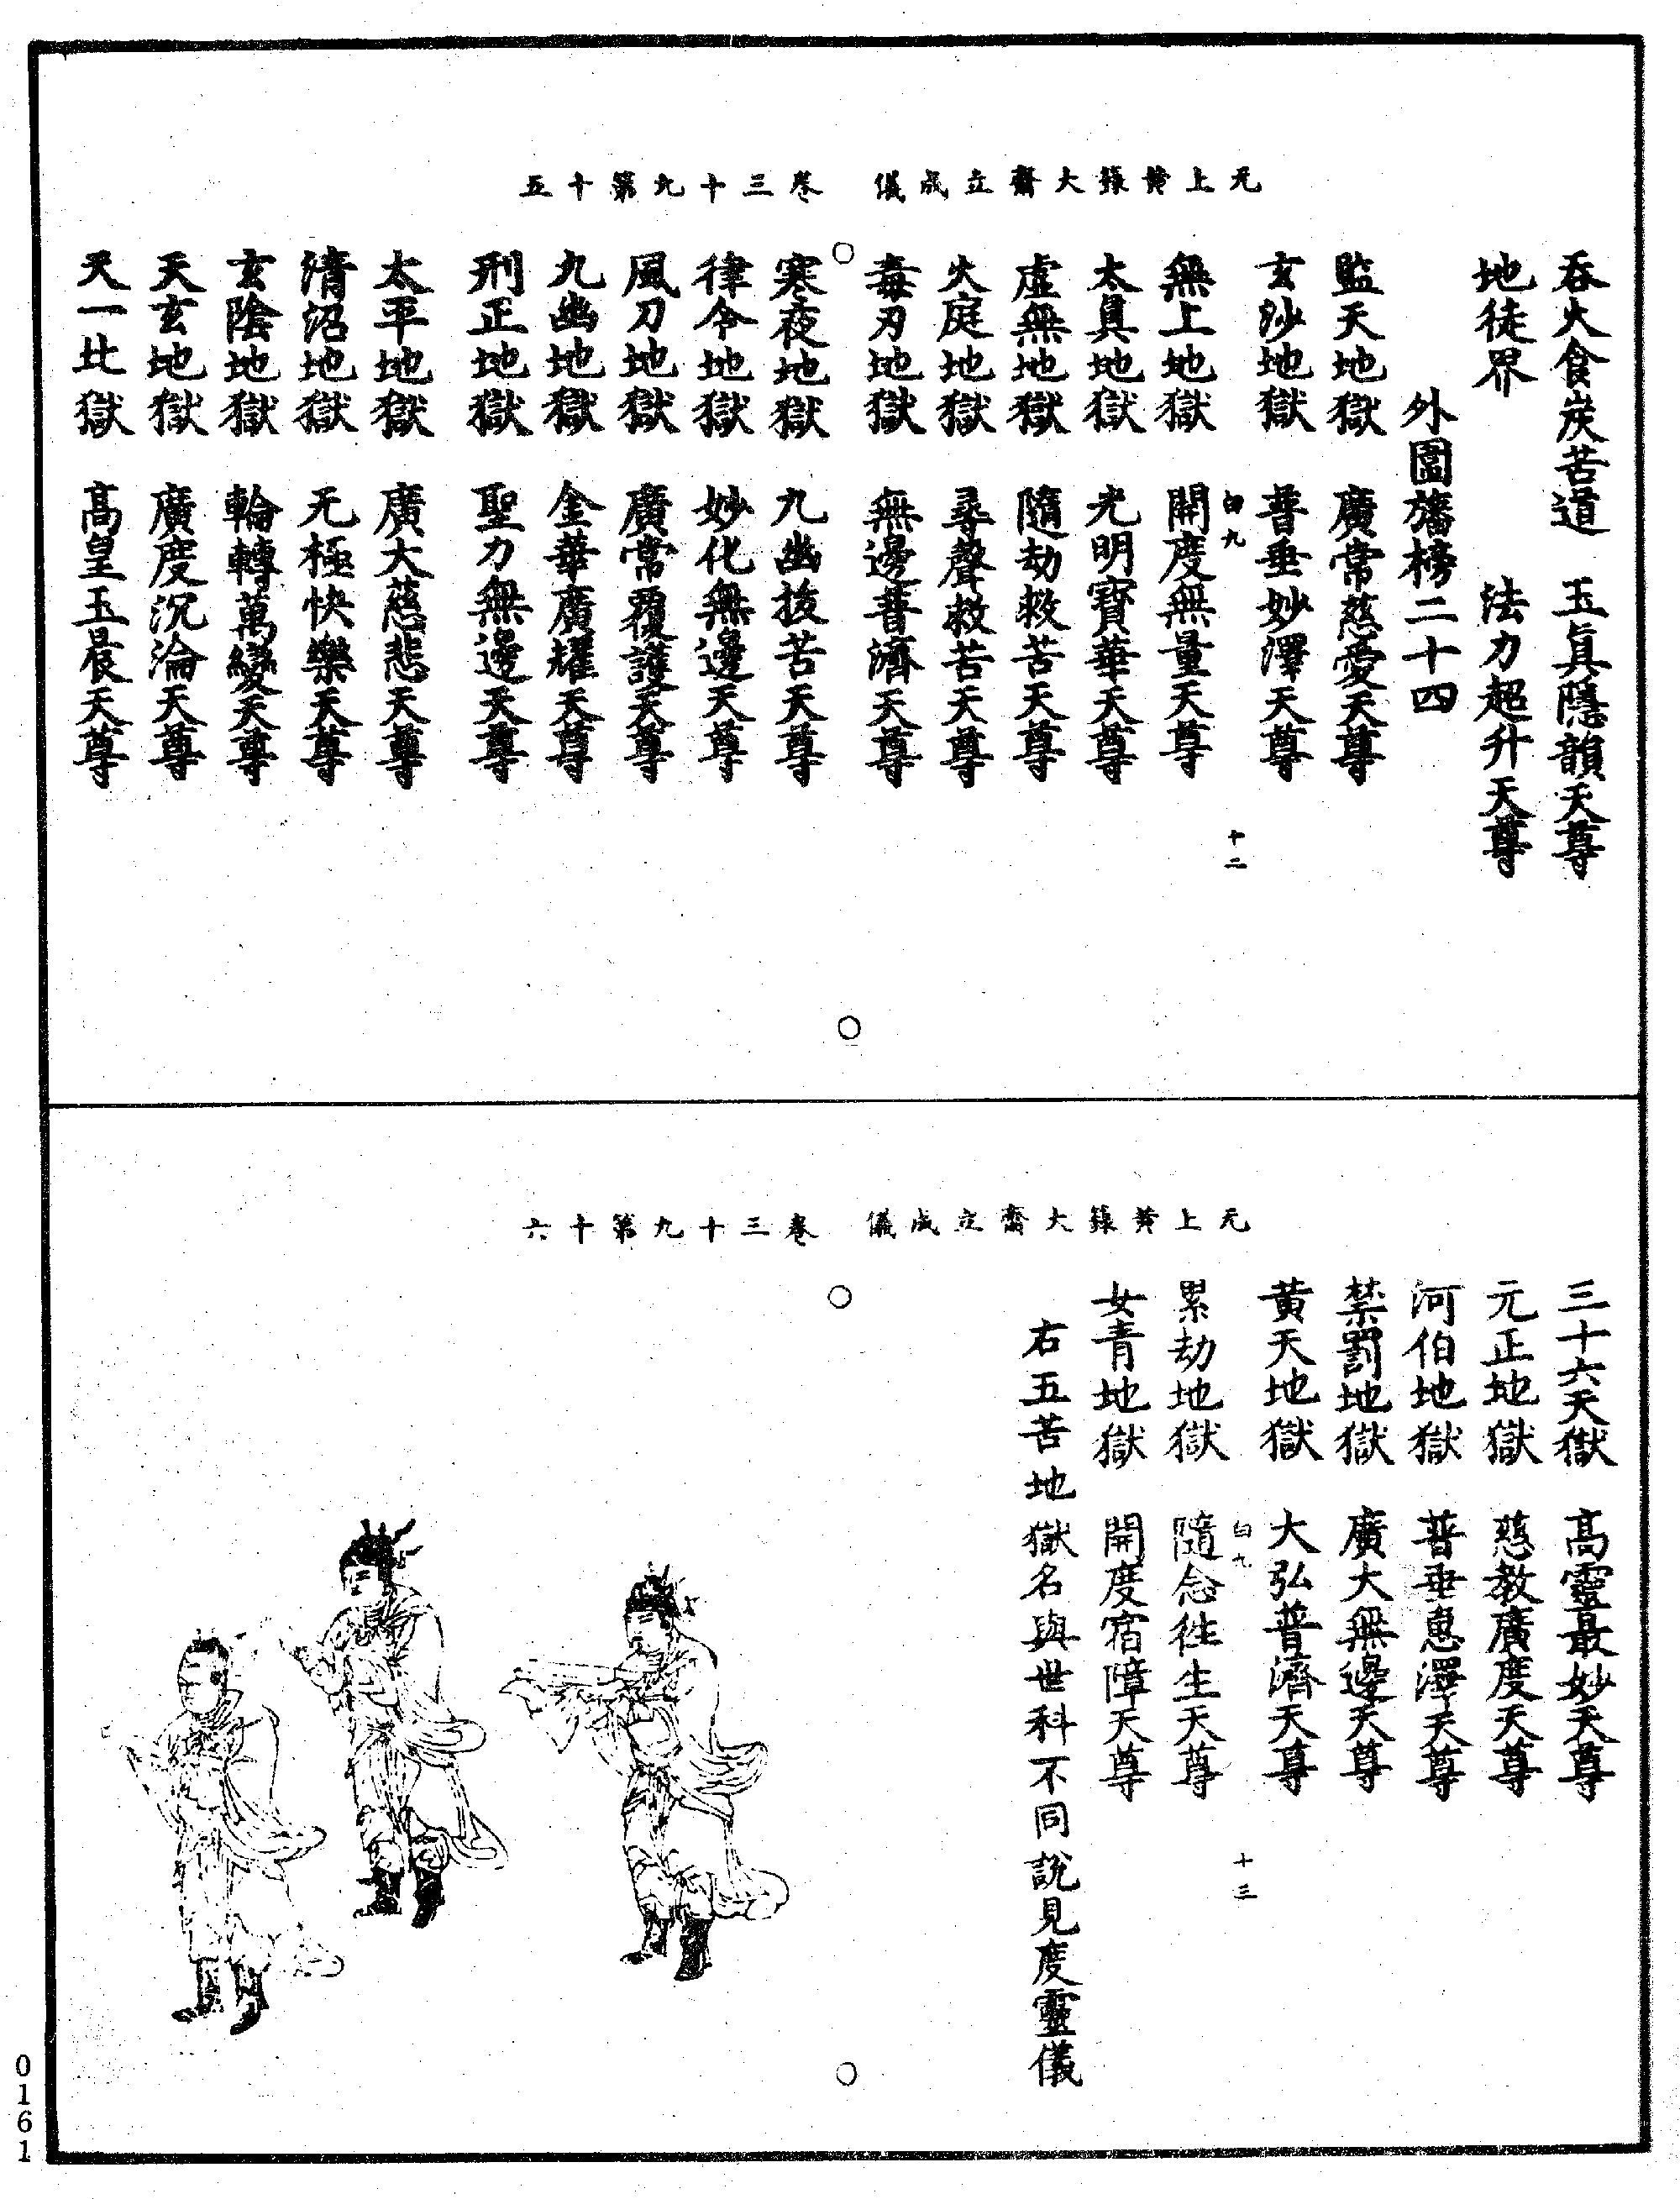 无上黄籙大齋立成儀　卷三十九第十五
吞火食炭苦道　玉眞隱韻天尊
地徒界　法力超升天尊
外圍旛榜二十四
監天地獄　廣常慈愛天尊
玄沙地獄　普垂妙澤天尊
白九　十二
無上地獄　開度無量天尊
太眞地獄　光明寶華天尊
虛無地獄　隨劫救苦天尊
火庭地獄　尋聲救苦天尊
毒刃地獄　無邊普濟天尊
寒夜地獄　九幽拔苦天尊
律令地獄　妙化無邊天尊
風刀地獄　廣常覆護天尊
九幽地獄　金華廣耀天尊
刑正地獄　聖力無邊天尊
太平地獄　廣大慈悲天尊
清沼地獄　无極快樂天尊
玄陰地獄　輪轉萬變天尊
天玄地獄　廣度沉淪天尊
天一北獄　高皇玉晨天尊
无上黄籙大齋立成儀　卷三十九第十六
三十六天獄　高靈最妙天尊
元正地獄　慈教廣度天尊
河伯地獄　普垂惠澤天尊
禁罰地獄　廣大無邊天尊
黃天地獄　大弘普濟天尊
白九　十三
累劫地獄　隨念徃生天尊
女青地獄　開度宿障天尊
右五苦地獄名與世科不同說見度靈儀
0161